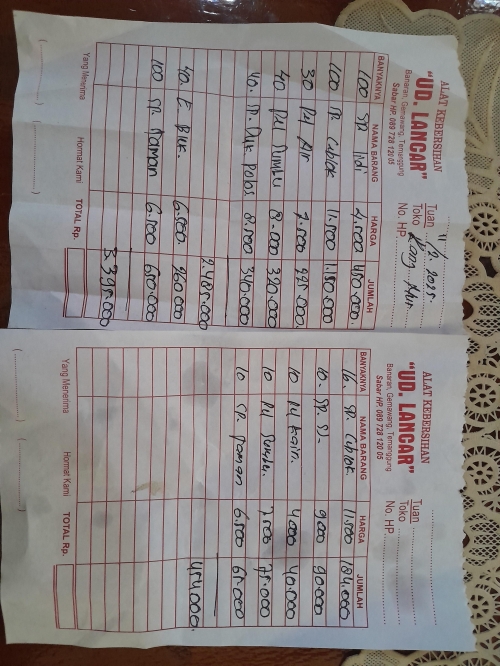 ALAT KEBERSIHAN
"UD. LANCAR"
Banaran, Gemawang, Temanggung
Sabar HP. 089 728 120 05
11/2 2025
Tuan
Toko Kang
No. HP
BANYAKNYA NAMA BARANG HARGA JUMLAH
100 SP. Lidi 4.500 450.000
100 SP. Cublok 11.500 1.150.000
30 Pel Air 7.500 225.000
40 Pel Sumbu 8.000 320.000
40. SP. Duk Polos 8.500 340.000
2.485.000
40. E. 6.500. 260.000
100 SP. Taman 6.500 650.000
3.395.000
TOTAL Rp.
Yang Menerima Hormat Kami
ALAT KEBERSIHAN
"UD. LANCAR"
Banaran, Gemawang, Temanggung
Sabar HP. 089 728 120 05
Tuan
Toko
No. HP
BANYAKNYA NAMA BARANG HARGA JUMLAH
16. SP. Cublok. 11.500 184.000
10. SP. 9.000 90.000
10 Pel Kain. 4.000 40.000
10 Pel Sumbu. 7.500 75.000
10 SP. Taman 6.500 65.000
454.000.
TOTAL Rp.
Yang Menerima Hormat Kami